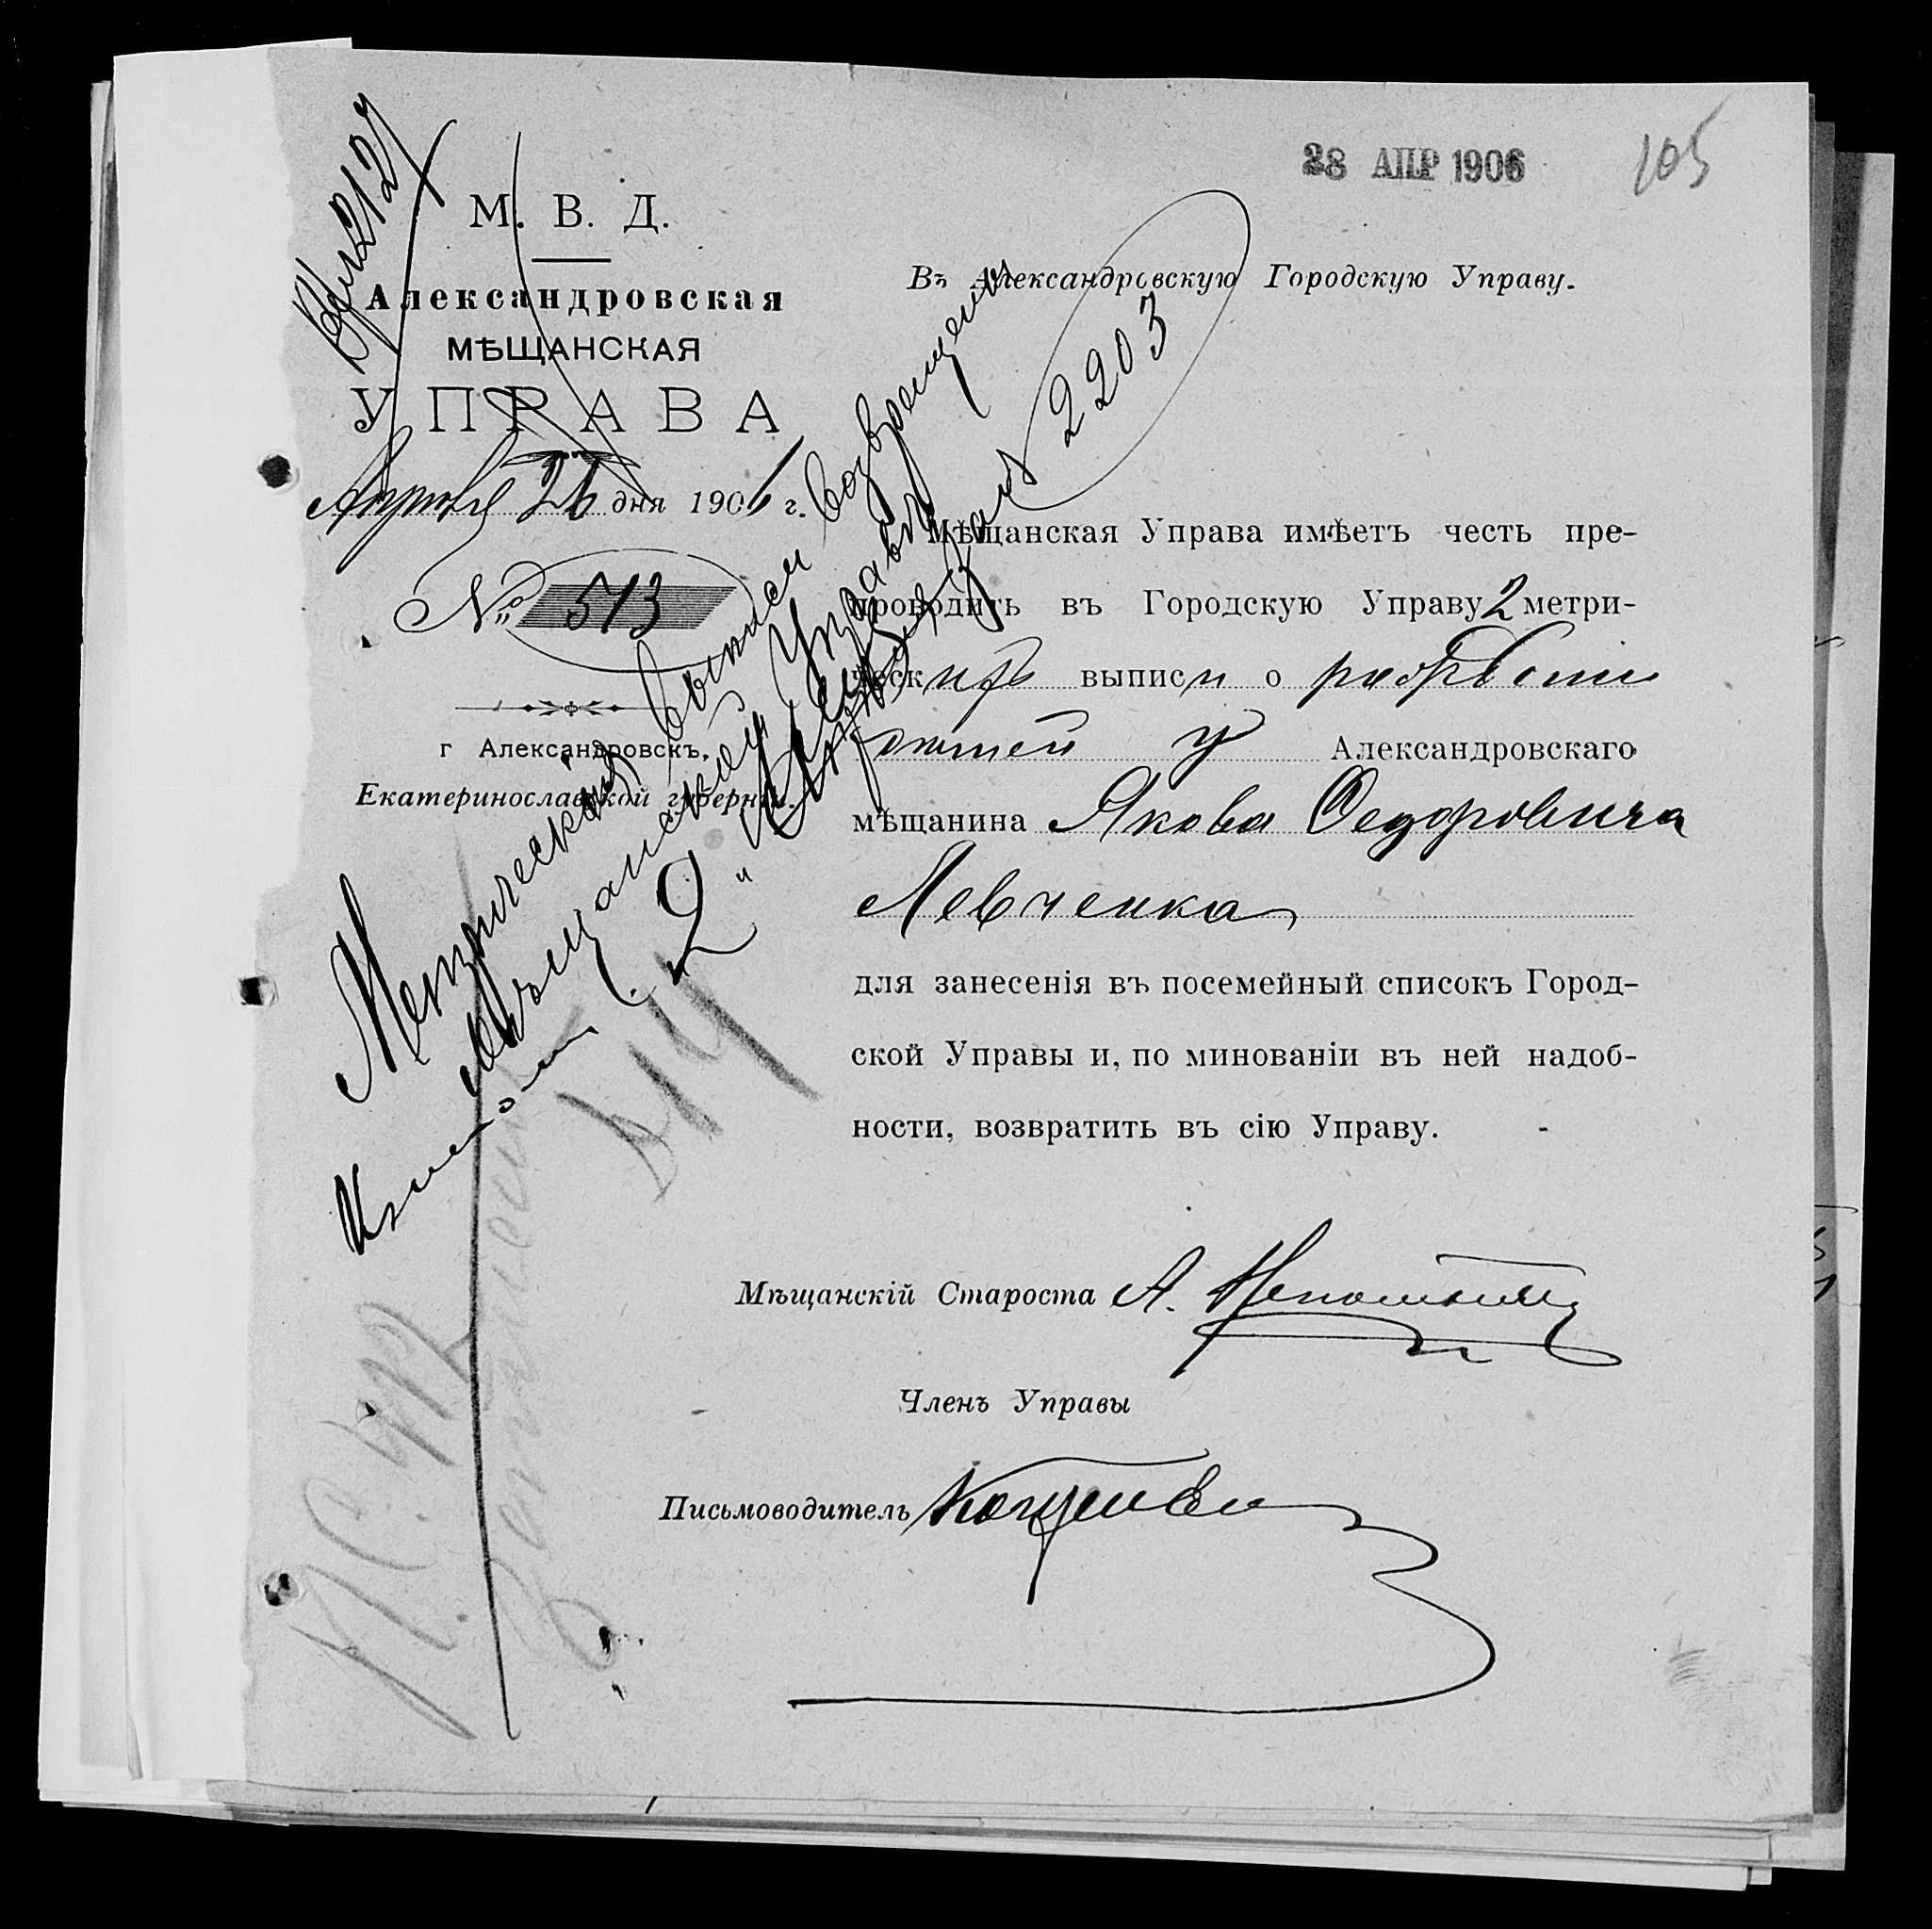 28 АПР 1906
105
Вх 2127
М. В. Д.
Александровская
МѢЩАНСКАЯ
УПРАВА
Апрѣля 26 дня 1906 г.
№ 513
г Александровскъ,
Екатеринославской губерніи.
Въ Александровскую Городскую Управу.
Мѣщанская Управа имѣетъ честь пре-
проводить въ Городскую Управу 2 метри-
ческихъ выписи о рожденіи
дѣтей у Александровскаго
мѣщанина Якова Федоровича
Левченка
для занесенія въ посемейный списокъ Город-
ской Управы и, по минованіи въ ней надоб-
ности, возвратить въ сію Управу.
Мѣщанскій Староста А.
Членъ Управы
Письмоводитель
Метрическія выписи возвращены
Мѣщанской Управѣ
2
за № 2203